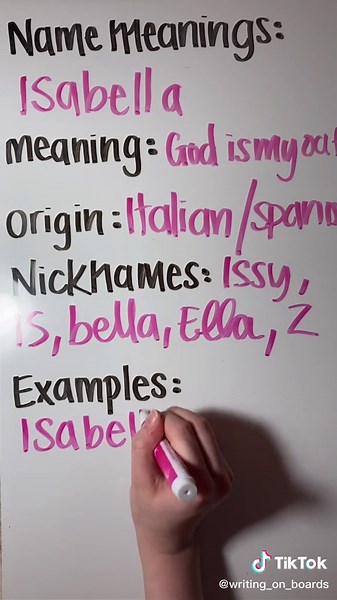 Name meanings:
Isabella
meaning: God is my oat
origin: Italian/Span
Nicknames: Issy,
IS, bella, Ella, Z
Examples:
Isabel
TikTok
@writing_on_boards